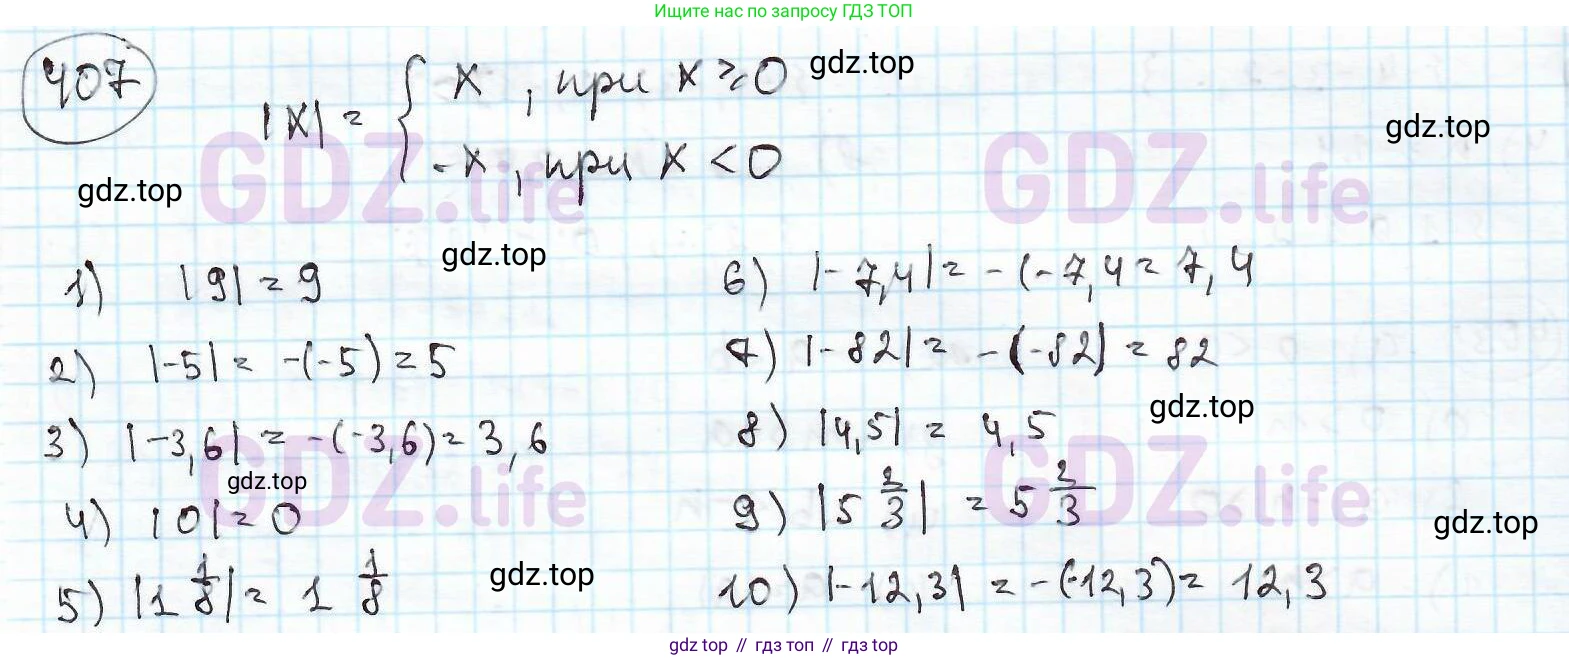 Ищите нас по запросу ГДЗ ТОП
407
|x| = { x , при x ≥ 0
-x , при x < 0
gdz.top
gdz.top
gdz.top
GDZ.life
GDZ.life
gdz.top
1) |9| = 9
2) |-5| = -(-5) = 5
3) |-3,6| = -(-3,6) = 3,6
gdz.top
4) |0| = 0
5) |1 1/8| = 1 1/8
gdz.top
GDZ.life
6) |-7,4| = -(-7,4 = 7,4
7) |-82| = -(-82) = 82
gdz.top
8) |4,5| = 4,5
9) |5 2/3| = 5 2/3
gdz.top
10) |-12,3| = -(-12,3) = 12,3
GDZ.life
gdz top // гдз топ // gdz.top